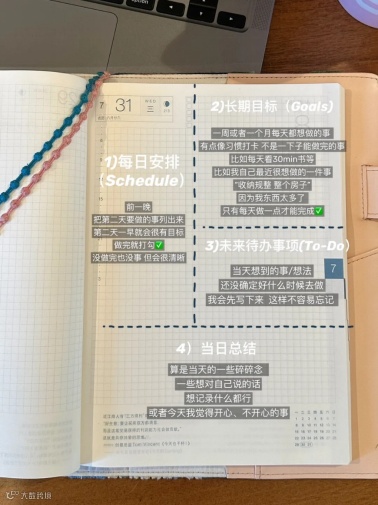 7 31 三
2)长期目标（Goals)
一周或者一个月每天都想做的事
有点像习惯打卡 不是一下子能做完的事
比如每天看30min书等
比如我自己最近很想做的一件事
“收纳规整 整个房子”
因为我东西太多了
只有每天做一点才能完成✅
1)每日安排
（Schedule）
前一晚
把第二天要做的事列出来
第二天一早就会很有目标
做完就打勾✅
没做完也没事 但会很清晰
3)未来待办事项(To-Do)
7
当天想到的事/想法
还没确定好什么时候去做
我会先写下来 这样不容易忘记
4）当日总结
算是当天的一些碎碎念
一些想对自己说的话
想记录什么都行
或者今天我觉得开心、不开心的事
大数跨境